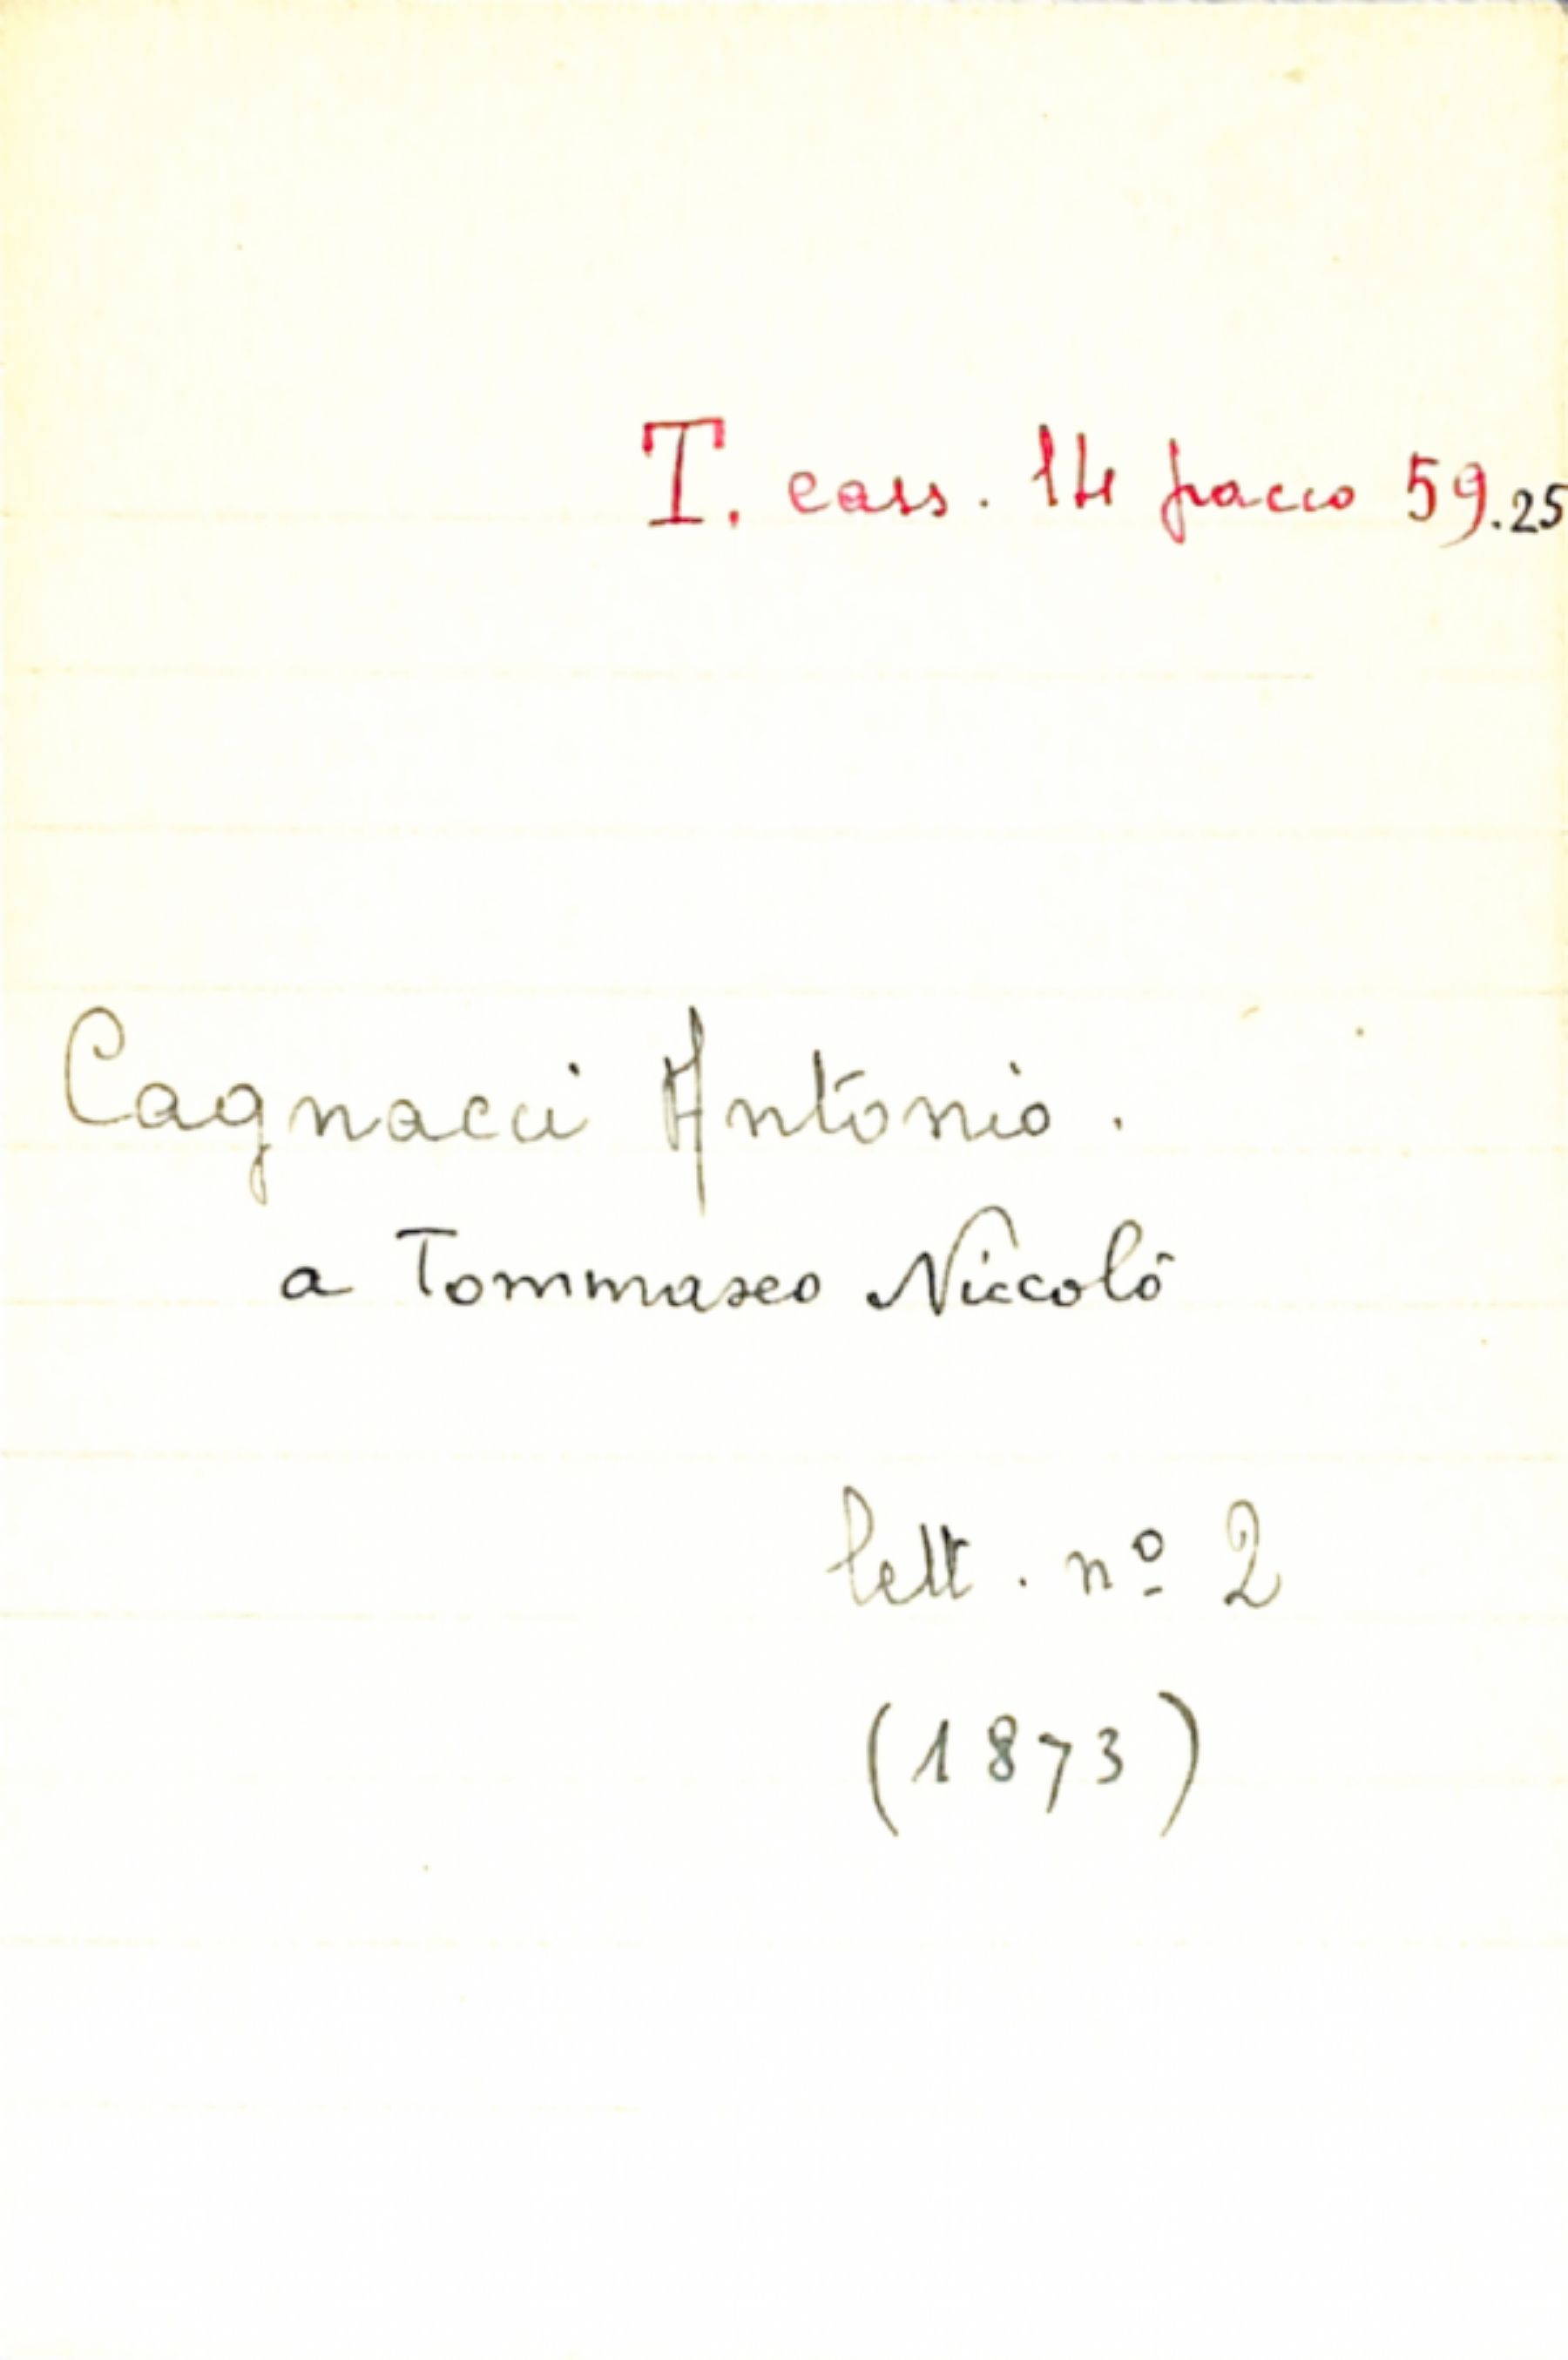 T. cass. 14 pacco 59.25
Cagnacci Antonio.
a Tommaseo Niccolò
lett. nº 2
(1873)